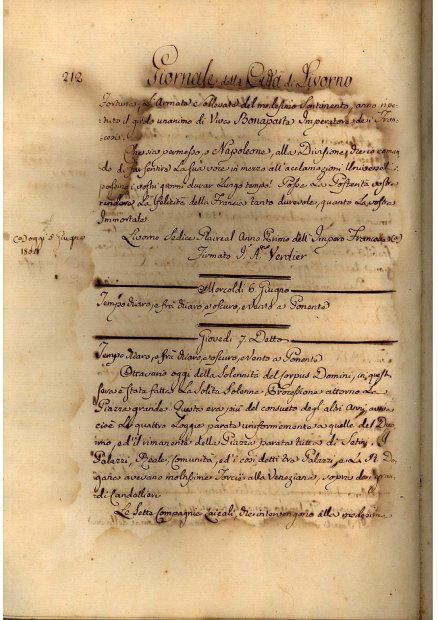 212
Giornale della Città di Livorno
Fortuna, l'Armata è sollevata del medesimo Sentimento, anno ripe-
tuto il grido unanimo di Viva Bonaparte Imperatore de i Fran-
cesi.
Che sia permesso, o Napoleone, alla Divisione, che io coman-
do di fa sentire La sua voce in mezzo all'acclamazioni Universali
possino i vostri giorni durar Lungo tempo! Possa La Posterità vostra
rendere La felicità della Francia tanto durevole, quanto La vostra
Immortale.
Livorno Sedice Pratreal Anno Primo dell'Impero Francese
Ca) oggi 5 Giugno
1804
Firmato J. A. Verdier
Mercoldì 6 Giugno
Tempo chiaro, e frà chiaro, e oscuro, e vento a Ponente
Giovedì 7 Detto
Tempo chiaro, e frà chiaro, e oscuro, e vento a Ponente
Stravario oggi della Solennità del Corpus Domini, in quest
sera è stata fatta La Solita Solenne Processione attorno La
Piazza grande. Questa era più del consueto degli altri Anni,
cioè Le quattro Loggie parate uniformemente a quelle del Du-
omo, ed il rimanente della Piazza parata tutta di Setini. I
Palazzi, Reale, Comunità, ed i così detti tra Palazzi, e La R. Do-
gana avevano moltissime Torcie alla Veneziana, sopra dei gran-
di Candellieri
Le Sette Compagnie Laicali, che intervengono alla medesima